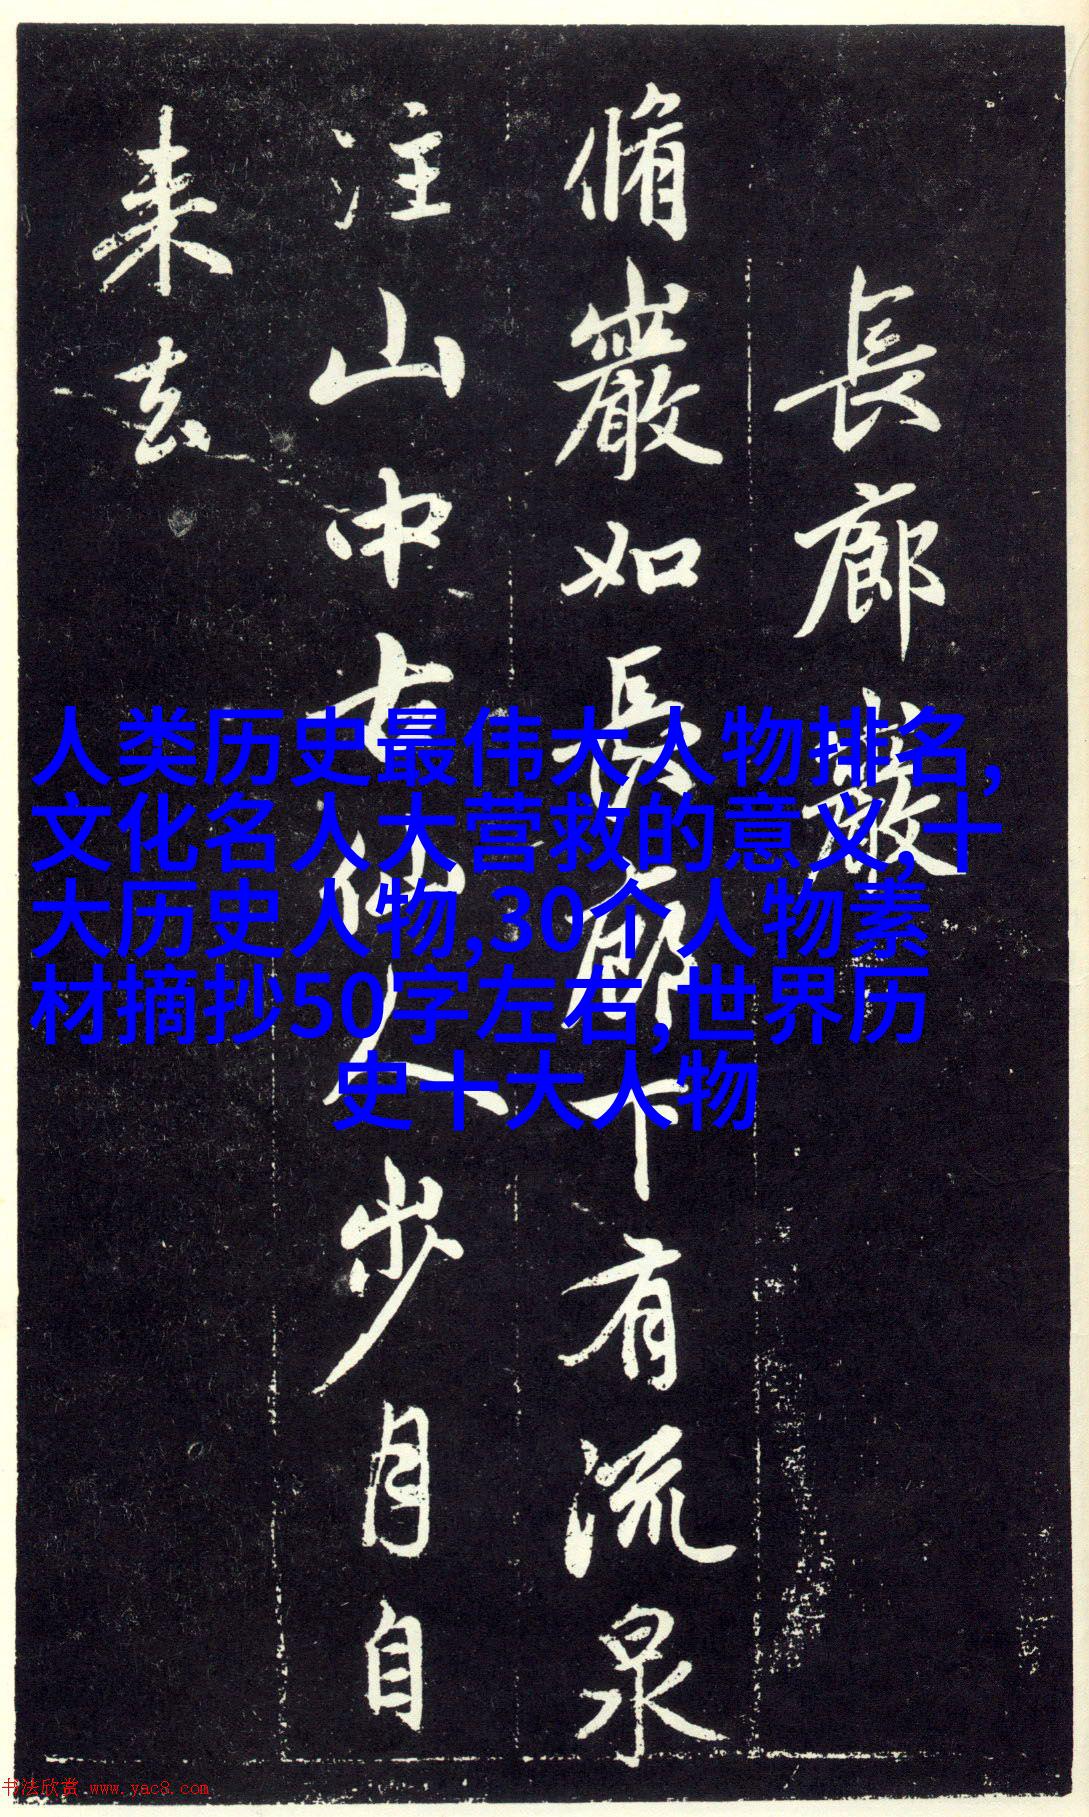 長廊巖
脩巖如長廊下有流泉
注山中古仙人步月自
来去
人类历史最伟大人物排名,
文化名人大营救的意义,十
大历史人物,30个人物素
材摘抄50字左右,世界历
史十大人物
书法欣赏 www.yac8.com